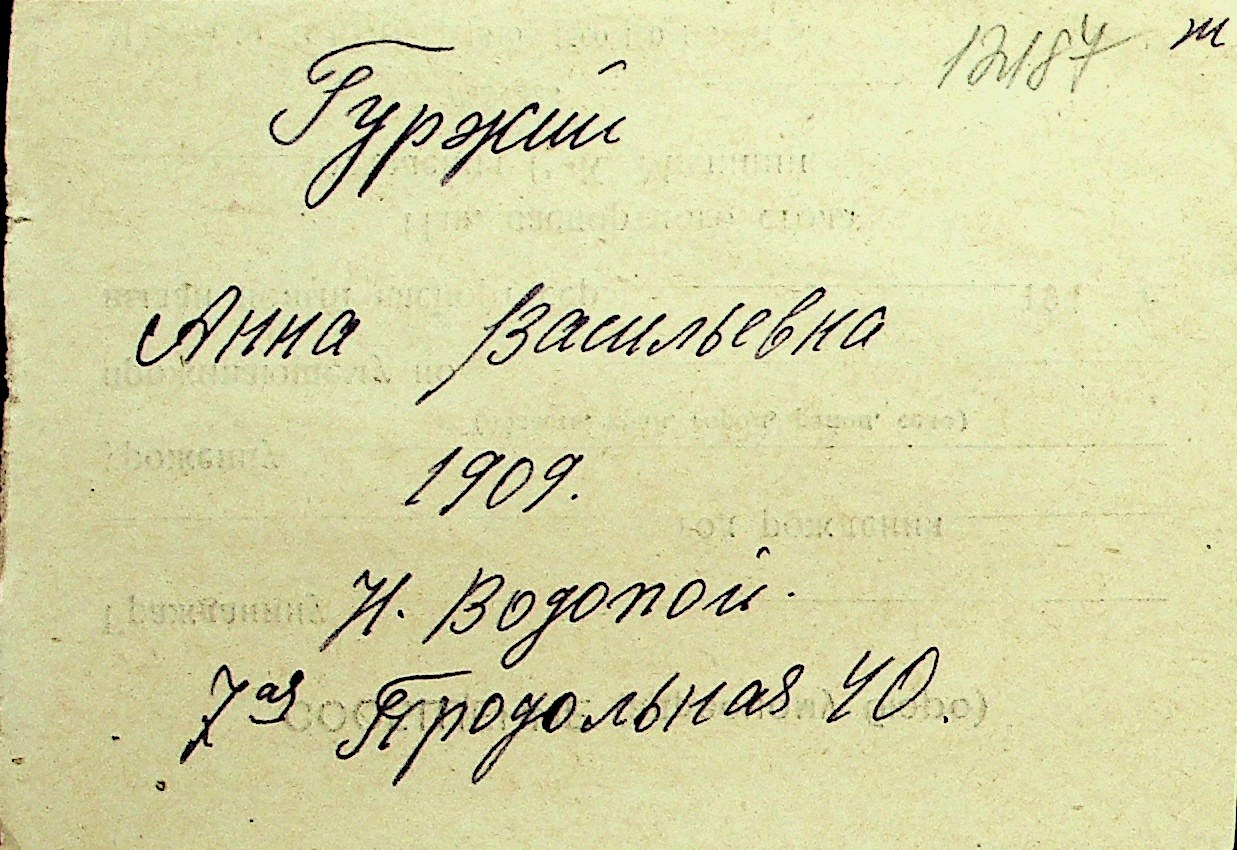 12187 ж
Гуржий
Анна Васильевна
1909.
Н. Водопой.
7ая Продольная 40.